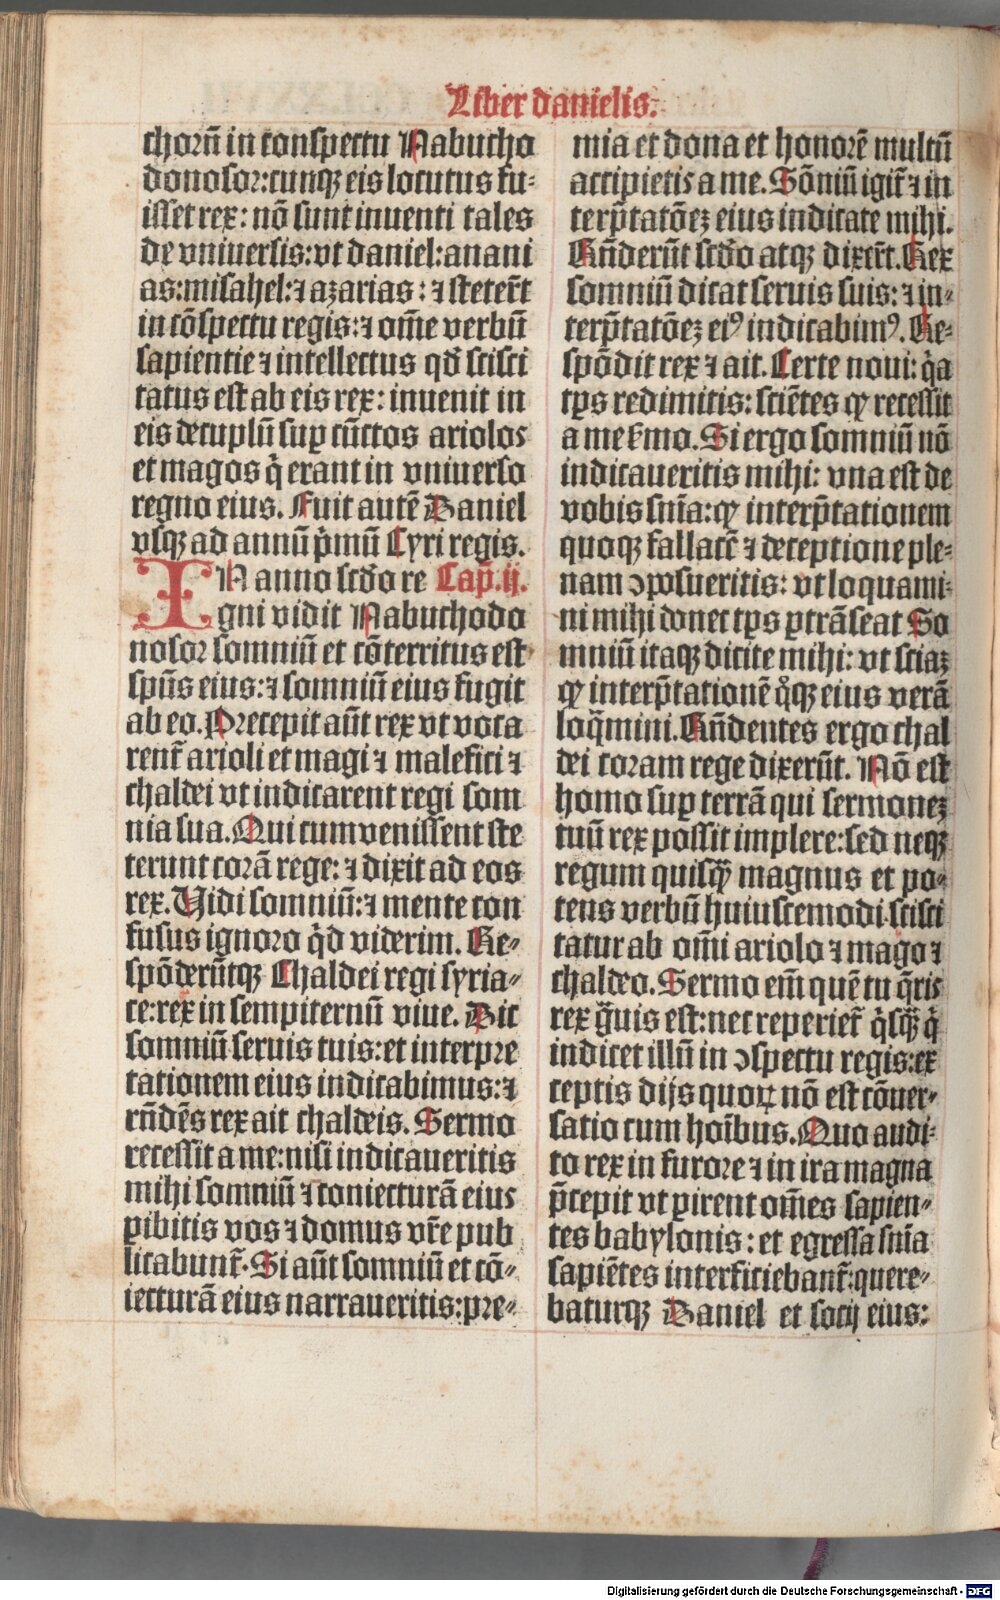 Liber danielis.
choꝝ in conspectu Nabucho
donosor: cunqꝫ eis locutus fu⸗
isset rex: nō sunt inuenti tales
de vniuersis: vt daniel: anani
as: misahel: ⁊ azarias: ⁊ steter̄t
in cōspectu regis: ⁊ om̄e verbū
sapientie ⁊ intellectus qd̄ scisci
tatus est ab eis rex: inuenit in
eis decuplū suꝑ cūctos ariolos
et magos q̄ erant in vniuerso
regno eius. Fuit autē Daniel
vsqꝫ ad annū p̄mū Cyri regis.
IN anno scd̄o re Cap̄. ij.
gni vidit Nabuchodo
nosor somniū et cōterritus est
spūs eius: ⁊ somniū eius fugit
ab eo. Precepit aūt rex vt voca
rent̄ arioli et magi ⁊ malefici ⁊
chaldei vt indicarent regi som
nia sua. Qui cum venissent ste
terunt corā rege: ⁊ dixit ad eos
rex. Uidi somniū: ⁊ mente con
fusus ignoro qd̄ viderim. Re⸗
spōderūtqꝫ Chaldei regi syria⸗
ce: rex in sempiternū viue. Dic
somniū seruis tuis: et interpre
tationem eius indicabimus: ⁊
rn̄dēs rex ait chaldeis. Sermo
recessit a me: nisi indicaueritis
mihi somniū ⁊ coniecturā eius
ꝑibitis vos ⁊ domus vr̄e pub
licabunt̄. Si aūt somniū et cō⸗
iecturā eius narraueritis: pre⸗
mia et dona et honorē multū
accipietis a me. Sōniū igit̄ ⁊ in
terp̄tatōeꝫ eius indicate mihi.
Rn̄derūt scd̄o atqꝫ dixer̄t. Rex
somniū dicat seruis suis: ⁊ in⸗
terp̄tatōeꝫ eiꝰ indicabimꝰ. Re⸗
spōdit rex ⁊ ait. Certe noui: q̄a
tp̄s redimitis: sciētes ꝙ recessit
a me s̄mo. Si ergo somniū nō
indicaueritis mihi: vna est de
vobis sn̄ia: ꝙ interp̄tationem
quoqꝫ fallacē ⁊ deceptione ple⸗
nam ꝯposueritis: vt loquami⸗
ni mihi donec tp̄s ꝑtrāseat So
mniū itaqꝫ dicite mihi: vt sciaꝫ
ꝙ interp̄tationē q̄qꝫ eius verā
loq̄mini. Rn̄dentes ergo chal
dei coram rege dixerūt. Nō est
homo suꝑ terrā qui sermoneꝫ
tuū rex possit implere: sed neqꝫ
regum quisqꝫ̄ magnus et po⸗
tens verbū huiuscemodi scisci
tatur ab om̄i ariolo ⁊ mago ⁊
chaldeo. Sermo em̄ quē tu q̄ris
rex ḡuis est: nec reperiet̄ q̄sqꝫ̄ q̄
indicet illū in ꝯspectu regis: ex
ceptis dijs quoꝝ nō est cōuer⸗
satio cum hoībus. Quo audi⸗
to rex in furore ⁊ in ira magna
p̄cepit vt ꝑirent om̄es sapien⸗
tes babylonis: et egressa sn̄ia
sapiētes interficiebant̄: quere⸗
baturqꝫ Daniel et socij eius:
Digitalisierung gefördert durch die Deutsche Forschungsgemeinschaft - DFG